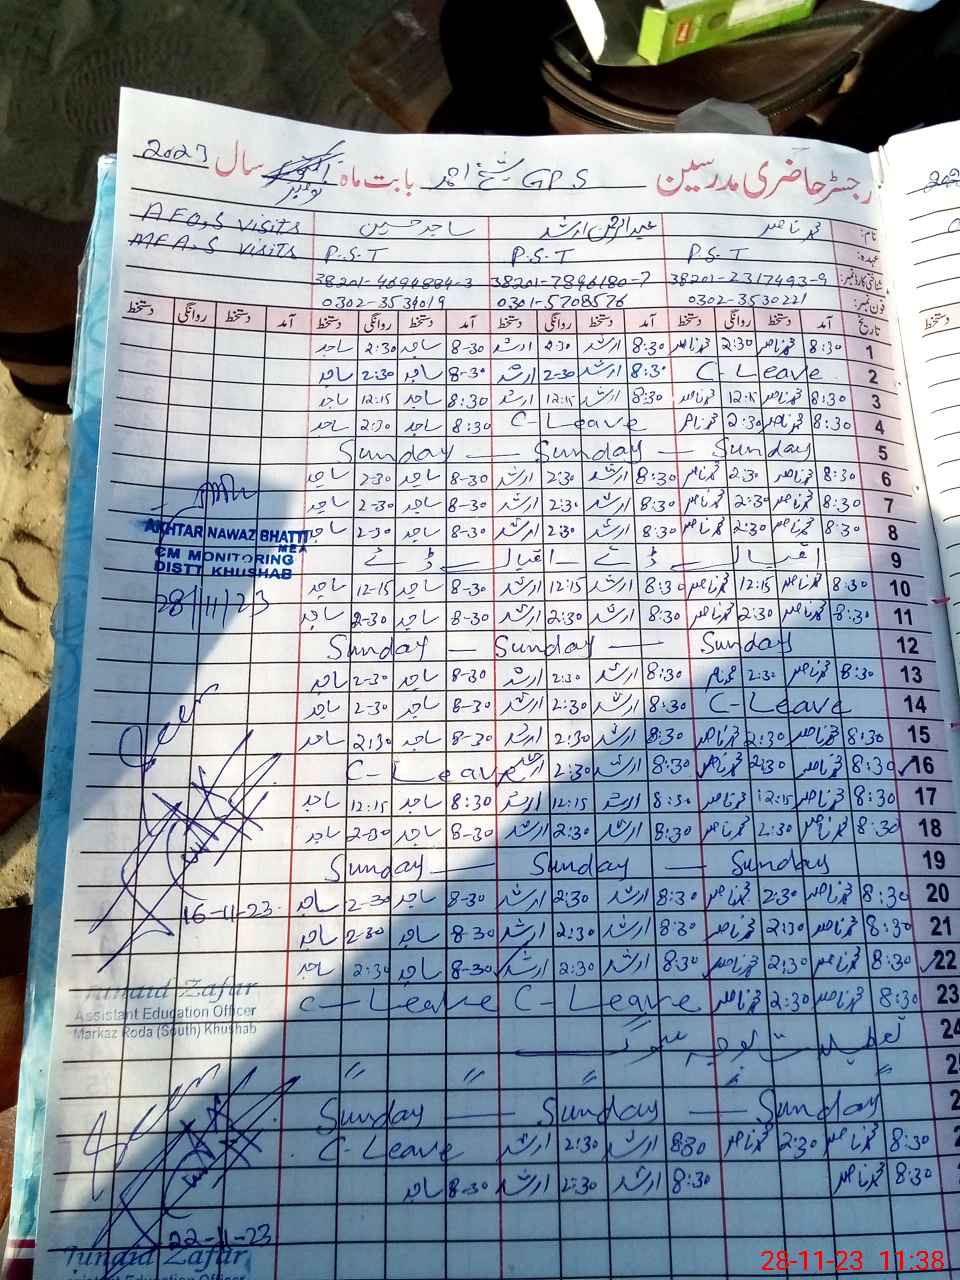 رجسٹر حاضری مدرسین GPS شیخ احمد بابت ماہ نومبر سال 2023
نام: محمد ناصر عبدالرحمن ارشد ساجد حسین AEO,S visits
عہدہ: P.S.T P.S.T P.S.T MEA,S visits
شناختی کارڈ نمبر: 38201-2317493-9 38201-7896180-7 38201-4694884-3
فون نمبر: 0302-3530221 0301-5708576 0302-3534019
تاریخ آمد دستخط روانگی دستخط آمد دستخط روانگی دستخط آمد دستخط روانگی دستخط آمد دستخط روانگی دستخط
1 8:30 محمد ناصر 2:30 محمد ناصر 8:30 ارشد 2:30 ارشد 8-30 ساجد 2:30 ساجد
2 C-Leave 8:30 ارشد 2-30 ارشد 8-30 ساجد 2:30 ساجد
3 8:30 محمد ناصر 12:15 محمد ناصر 8:30 ارشد 12:15 ارشد 8:30 ساجد 12:15 ساجد
4 8:30 محمد ناصر 2:30 محمد ناصر C-Leave 8:30 ساجد 2:30 ساجد
5 Sunday — Sunday — Sunday
6 8:30 محمد ناصر 2:30 محمد ناصر 8:30 ارشد 2:30 ارشد 8-30 ساجد 2-30 ساجد
7 8:30 محمد ناصر 2:30 محمد ناصر 8:30 ارشد 2:30 ارشد 8-30 ساجد 2-30 ساجد
8 8:30 محمد ناصر 2:30 محمد ناصر 8:30 ارشد 2:30 ارشد 8-30 ساجد 2-30 ساجد
9 اقبال ڈے اقبال ڈے
10 8:30 محمد ناصر 12:15 محمد ناصر 8:30 ارشد 12:15 ارشد 8-30 ساجد 12-15 ساجد
11 8:30 محمد ناصر 2:30 محمد ناصر 8:30 ارشد 2:30 ارشد 8-30 ساجد 2-30 ساجد
12 Sunday — Sunday — Sunday
13 8:30 محمد ناصر 2:30 محمد ناصر 8:30 ارشد 2:30 ارشد 8-30 ساجد 2-30 ساجد
14 C-Leave 8:30 ارشد 2:30 ارشد 8-30 ساجد 2-30 ساجد
15 8:30 محمد ناصر 2:30 محمد ناصر 8:30 ارشد 2:30 ارشد 8-30 ساجد 2:30 ساجد
16 8:30 محمد ناصر 2:30 محمد ناصر 8:30 ارشد 2:30 ارشد C-Leave
17 8:30 محمد ناصر 12:15 محمد ناصر 8:30 ارشد 12:15 ارشد 8:30 ساجد 12:15 ساجد
18 8:30 محمد ناصر 2:30 محمد ناصر 8:30 ارشد 2:30 ارشد 8-30 ساجد 2-30 ساجد
19 Sunday — Sunday — Sunday
20 8:30 محمد ناصر 2:30 محمد ناصر 8:30 ارشد 2:30 ارشد 8-30 ساجد 2-30 ساجد
21 8:30 محمد ناصر 2:30 محمد ناصر 8:30 ارشد 2:30 ارشد 8-30 ساجد 2-30 ساجد
22 8:30 محمد ناصر 2:30 محمد ناصر 8:30 ارشد 2:30 ارشد 8-30 ساجد 2:30 ساجد
23 8:30 محمد ناصر 2:30 محمد ناصر C-Leave C-Leave
24 تعطیل بوجہ سموگ
〃 〃 〃 〃 〃
Sunday — Sunday — Sunday
8:30 محمد ناصر 2:30 محمد ناصر 8:30 ارشد 2:30 ارشد C-Leave
8:30 محمد ناصر 8:30 ارشد 2:30 ارشد 8-30 ساجد
AKHTAR NAWAZ BHATTI
MEA
CM MONITORING
DISTT KHUSHAB
28/11/23
16-11-23
Junaid Zafar
Assistant Education Officer
Markaz Roda (South) Khushab
22-11-23
Junaid Zafar
Assistant Education Officer
28-11-23 11:38